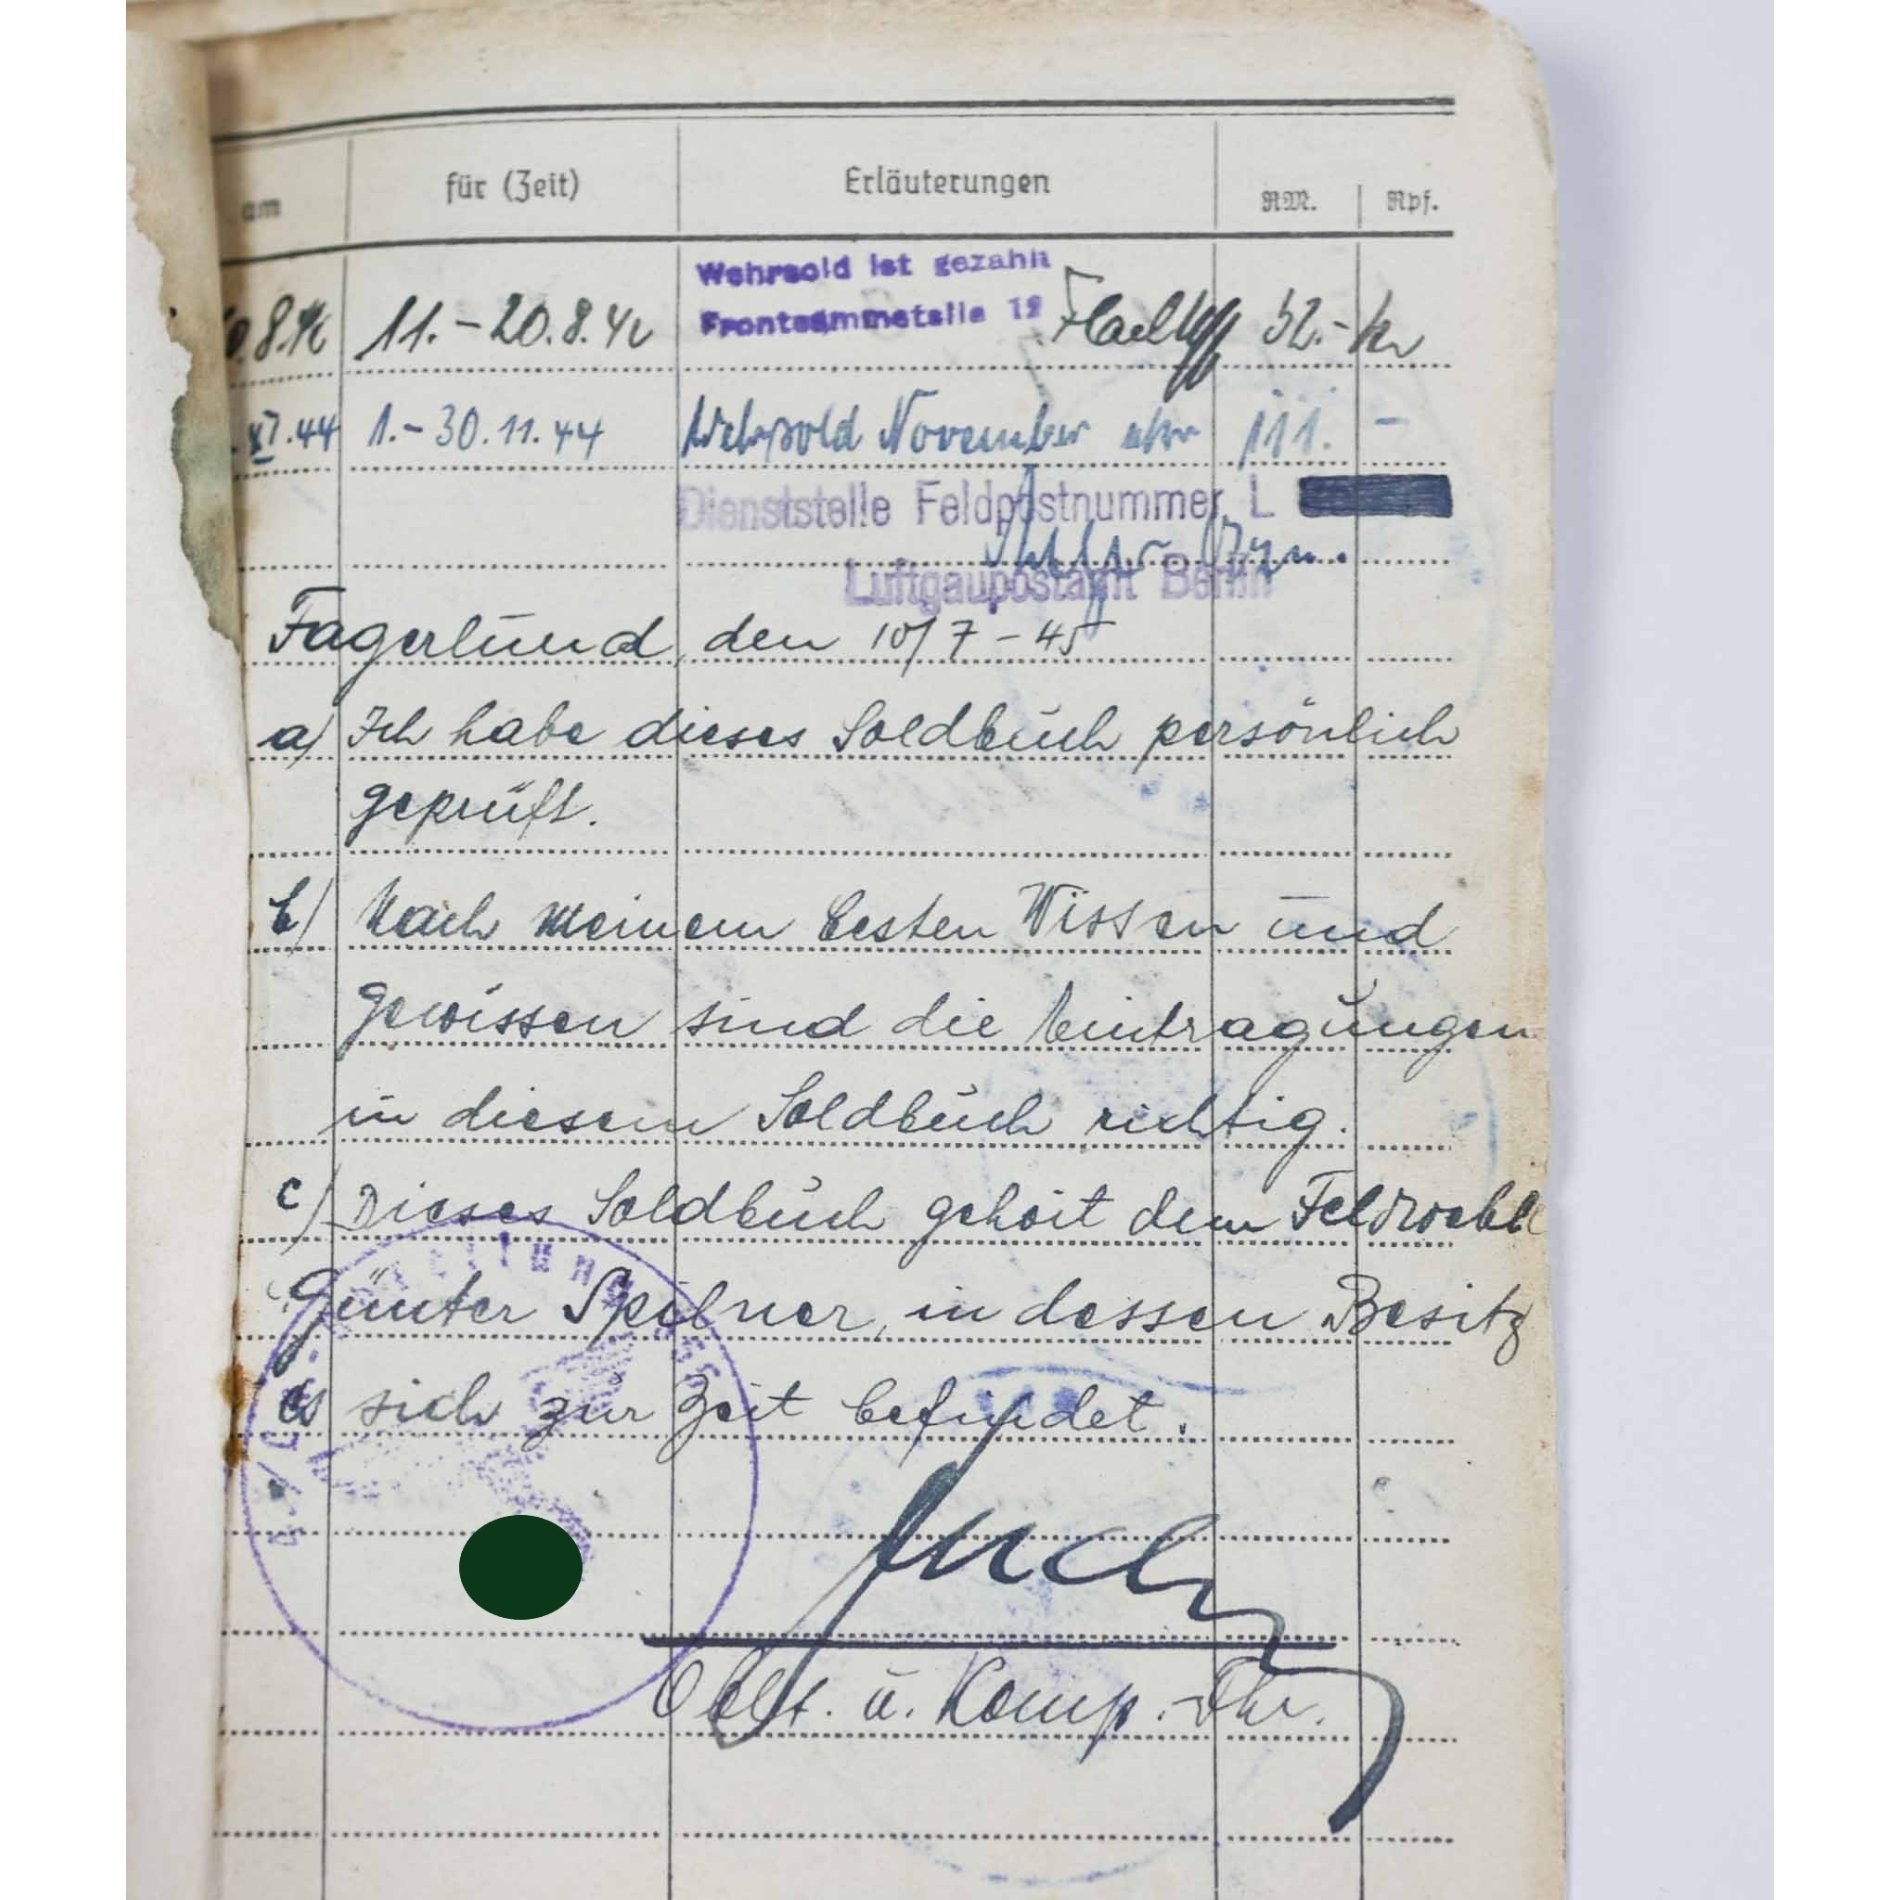 am für (Zeit) Erläuterungen RM. Rpf.
Wehrsold ist gezahlt
Frontsammelstelle 12
8.42 11.-20.8.42 52.-
XI.44 1.-30.11.44 Wehrsold November 111. -
Dienststelle Feldpostnummer L
Luftgaupostamt Berlin
Fagerlund, den 10/7-45
a) Ich habe dieses Soldbuch persönlich
geprüft.
b) Nach meinem besten Wissen und
Gewissen sind die Eintragungen
in diesem Soldbuch richtig.
c) Dieses Soldbuch gehört dem Feldwebel
Günter Spilner, in dessen Besitz
es sich zur Zeit befindet.
Oblt. u. Komp.-Fhr.